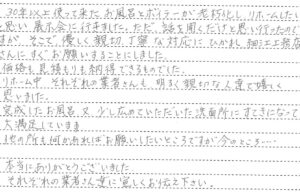 30年以上使って来たお風呂とボイラーが老朽化し、リホームしたいと
思い展示会に行きました。ただ、話を聞くだけと思い行ったのです
が、そこで優しく親切、丁寧な対応にひかれ、細江工務店
さんにすぐお願いすることにしました。
価格も見積もりも納得できるものでした。
リホーム中、それぞれの業者さんも、明るく親切な人達で嬉しく
思いました。
完成したお風呂、又少し広めていただいた洗面所にすてきになって
大満足しています。
他の所も何かあればお願いしたいところですが今のところ…。
本当にありがとうございました
それぞれの業者さん達に宜しくお伝え下さい。